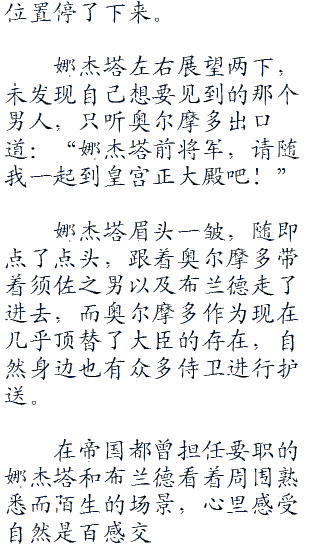 位置停了下来。
娜杰塔左右展望两下，
未发现自己想要见到的那个
男人，只听奥尔摩多出口
道：“娜杰塔前将军，请随
我一起到皇宫正大殿吧！”
娜杰塔眉头一皱，随即
点了点头，跟着奥尔摩多带
着须佐之男以及布兰德走了
进去，而奥尔摩多作为现在
几乎顶替了大臣的存在，自
然身边也有众多侍卫进行护
送。
在帝国都曾担任要职的
娜杰塔和布兰德看着周围熟
悉而陌生的场景，心里感受
自然是百感交